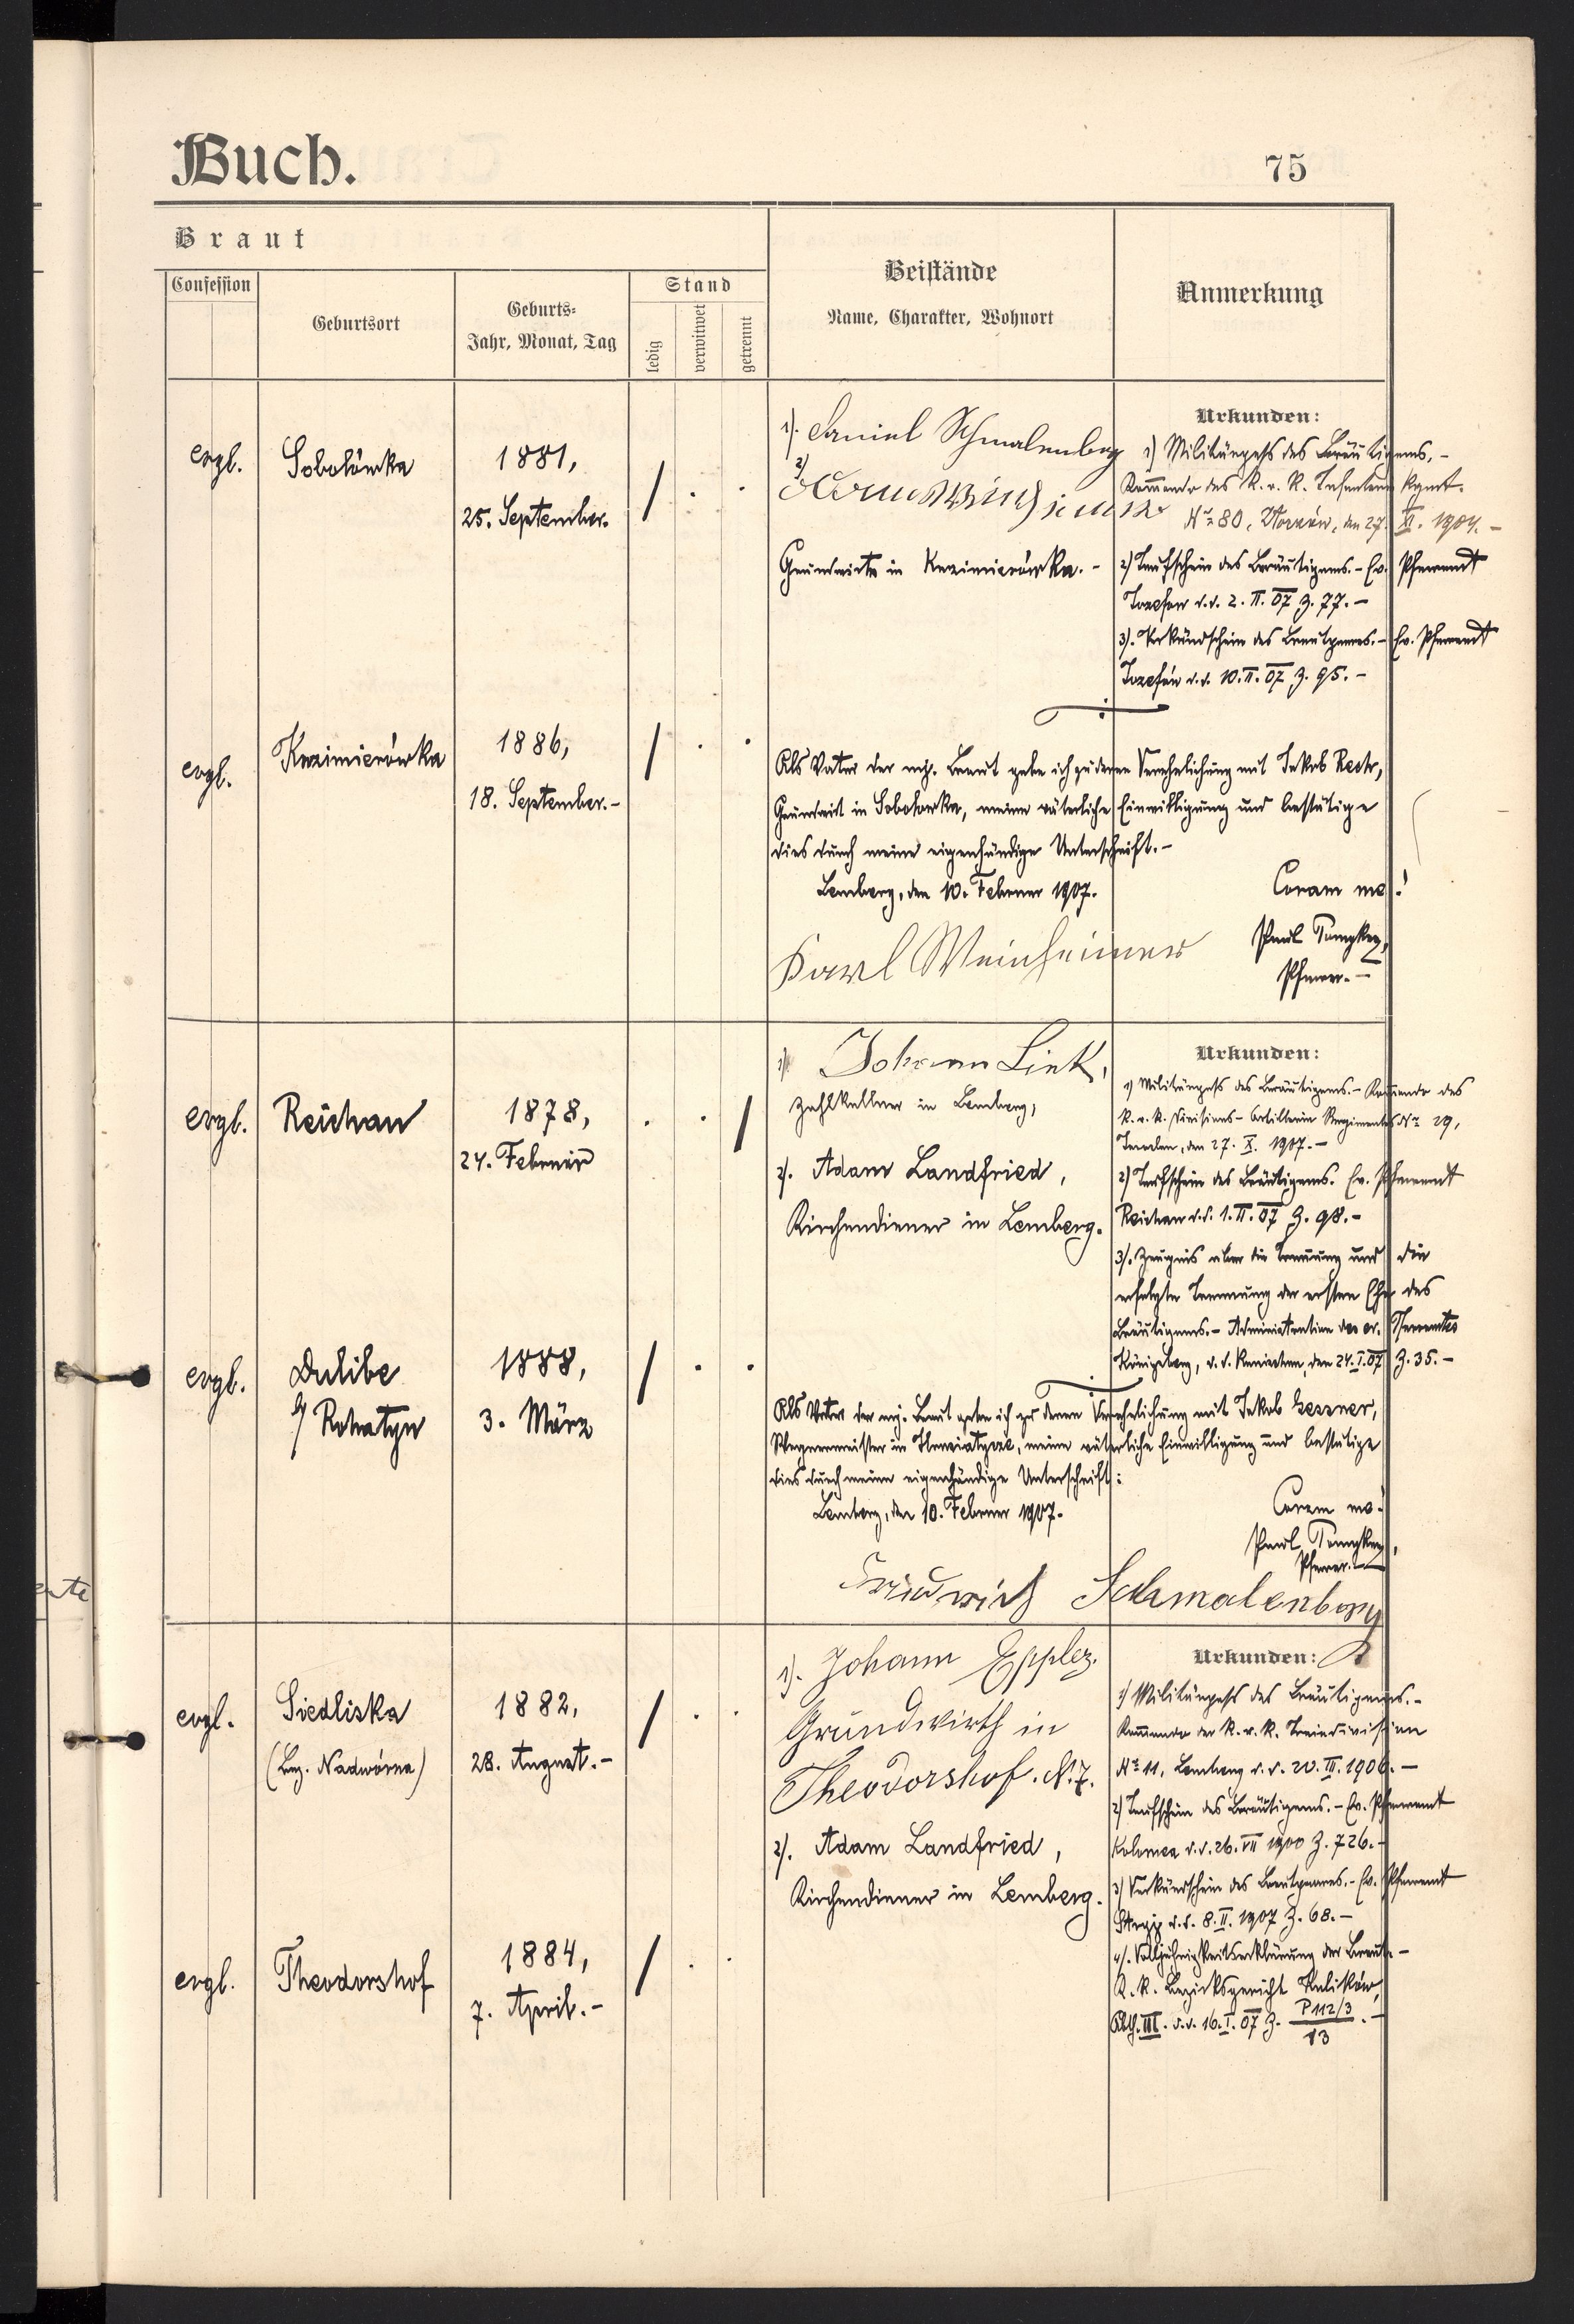 Buch.
75
Braut
Confession
Geburtsort
Geburts-
Jahr, Monat, Tag
Stand
ledig
verwitwet
getrennt
Beistände
Name, Charakter, Wohnort
Anmerkung
evgl.
Sobolówka
1881,
25. September.
1). Daniel Schmalenberg
2)
Grundwirte in Kazimierówka. -
Urkunden:
1) Militärpaß des Bräutigams, -
Kommando des K. u. K. Infanterie Rgmt.
No 80, Złoczów, den 27. XI. 1904. -
2) Taufschein des Bräutigams. - Ev. Pfarramt
Józefow d. d. 2. II. 07 Z. 77. -
3). Verkündschein des Brautpaares. - Ev. Pfarramt
Józefów d. d. 10. II. 07 Z. 95. -
evgl.
Kazimierówka
1886,
18. September. -
Als Vater der mj. Braut gebe ich zu deren Verehelichung mit Jakob Rech,
Grundwirt in Sobolowka, meine väterliche Einwilligung und bestätige
dies durch meine eigenhändige Unterschrift. -
Lemberg, den 10. Februar 1907.
Coram me!
Karl Weinheimer
Paul
Pfarrer. -
evgl.
Reichau
1878,
24. Februar
1) Johann Link,
Zahlkellner in Lemberg,
2). Adam Landfried,
Kirchendiener in Lemberg.
Urkunden:
1) Militärpaß des Bräutigams. - Kommando des
K. u. K. Divisions-Artillerie Regimentes No 29,
den 27. X. 1907. -
2) Taufschein des Bräutigams. Ev. Pfarramt
Reichau d. d. 1. II. 07 Z. 98. -
3). Zeugnis über die Trauung und die
erfolgte Trennung der ersten Ehe des
Bräutigams. - Administration des ev. Pfarramtes
Königsberg, d. d. den 24. I. 07 Z. 35. -
evgl.
Dulibe
b/ Rohatyn
1888,
3. März
Als Vater der mj. Braut gebe ich zu deren Verehelichung mit Jakob Gessner,
Wagnermeister in meine väterliche Einwilligung und bestätige
dies durch meine eigenhändige Unterschrift:
Lemberg, den 10. Februar 1907.
Coram me!
Paul
Pfarrer. -
Friedrich Schmalenberg
evgl.
Siedliska
(Bez. Nadwórna)
1882,
28. August. -
1). Johann Eppler.
Grundwirth in
Theodorshof. N. 7.
2). Adam Landfried,
Kirchendiener in Lemberg.
Urkunden:
1) Militärpaß des Bräutigams. -
Kommando der K. u. K. Traindivision
No 11, Lemberg d. d. 20. III. 1906. -
2) Taufschein des Bräutigams. - Ev. Pfarramt
Kolomea d. d. 26. VII 1900 Z. 726. -
3) Verkündschein des Brautpaares. - Ev. Pfarramt
Stryj d. d. 8. II. 1907 Z. 68. -
4). Volljährigkeitserklärung der Braut. -
K. K. Bezirksgericht Kulików,
Abth. III. d. d. 16. I. 07 Z. P 112/3
13
evgl.
Theodorshof
1884,
7. April. -